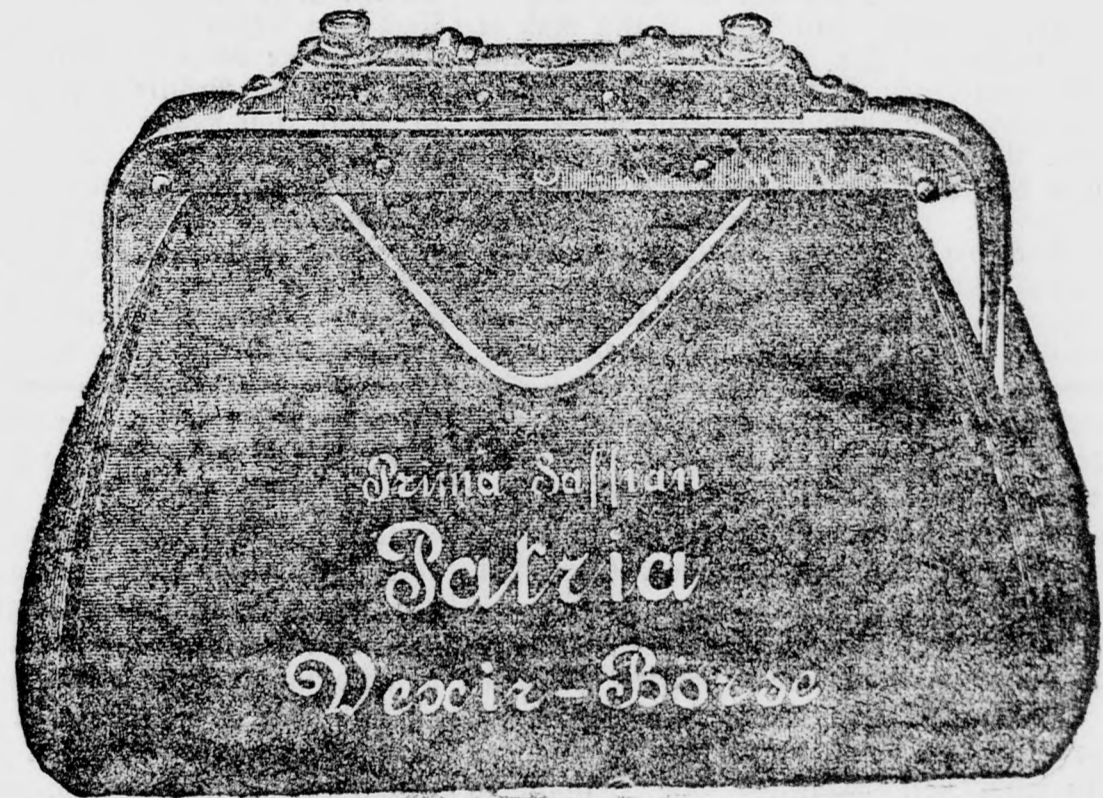 Prima Saffian
Patria
Vexir-Börse